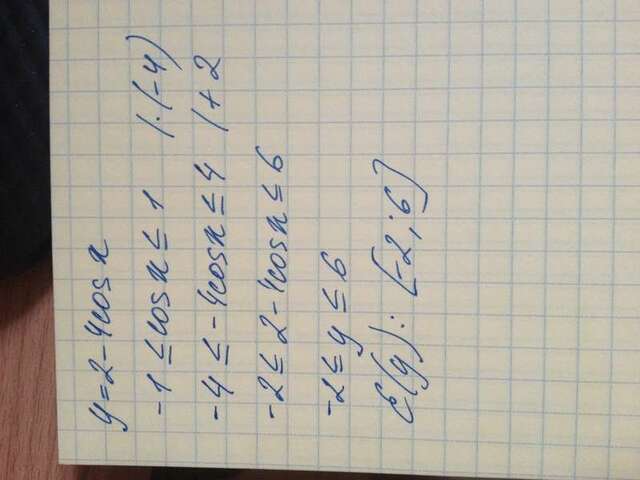 y=2-4cos x
-1 ≤ cos x ≤ 1 |·(-4)
-4 ≤ -4cos x ≤ 4 |+2
-2 ≤ 2-4cos x ≤ 6
-2 ≤ y ≤ 6
E(y): [-2; 6]